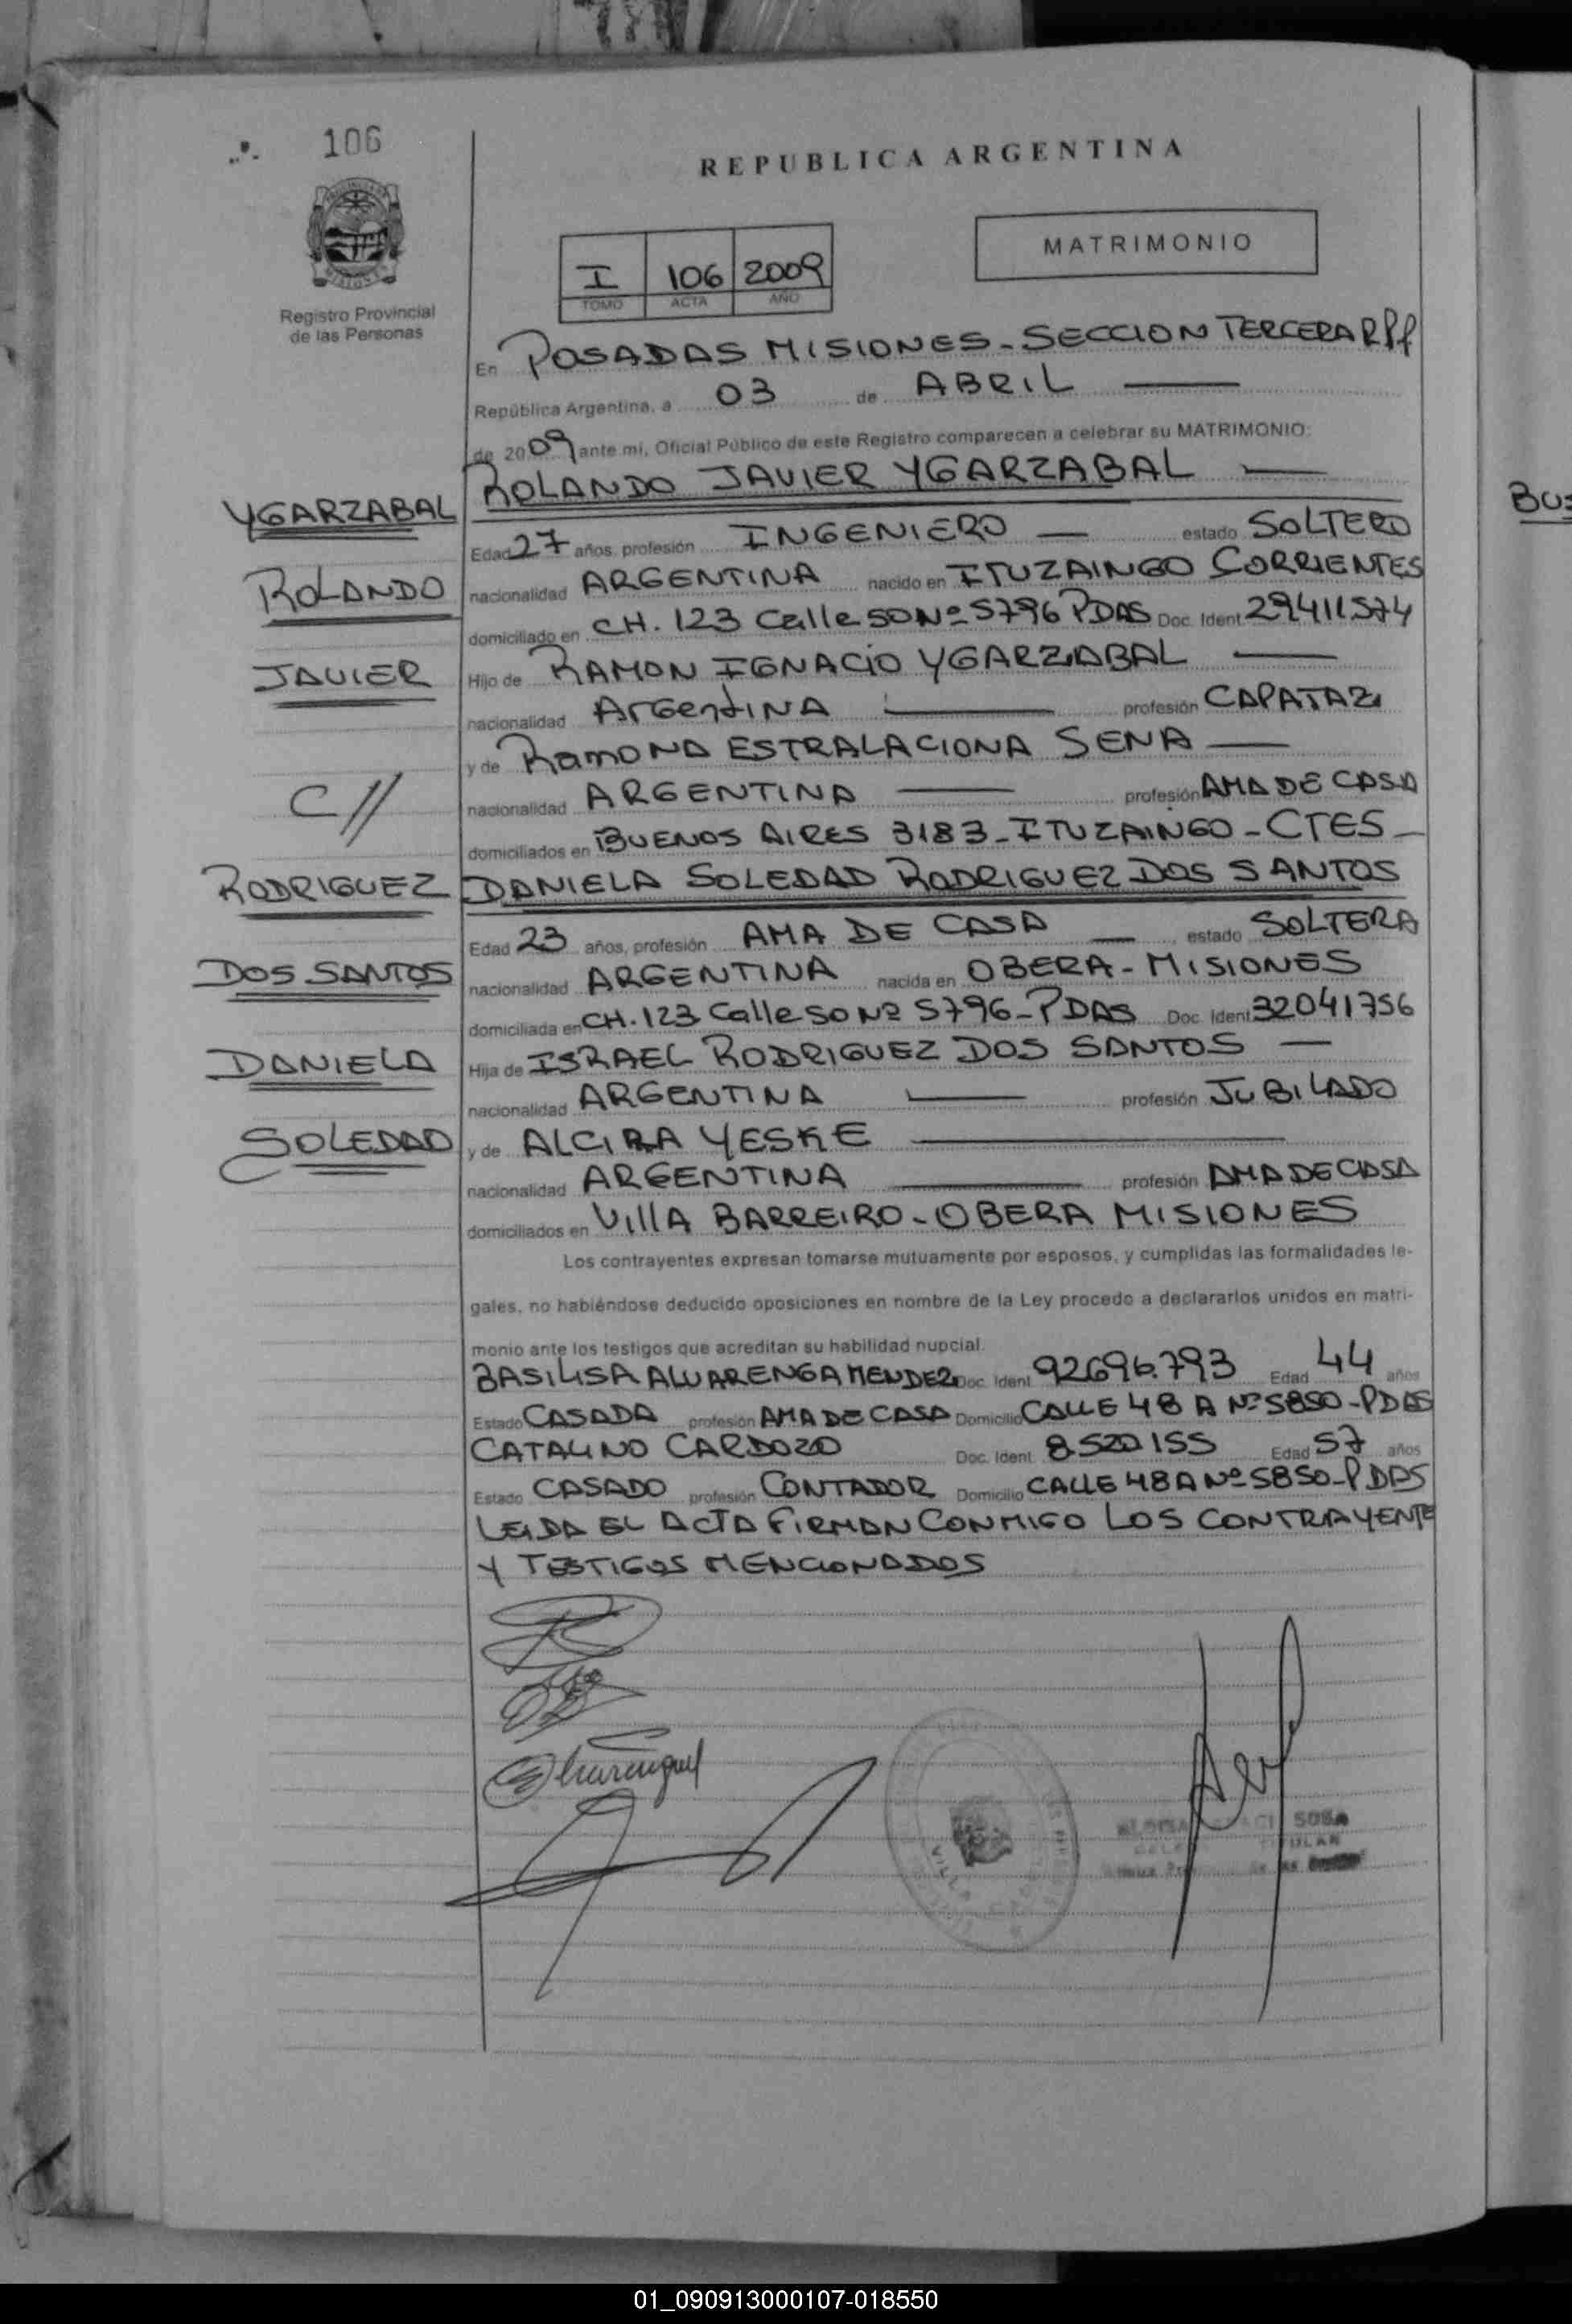 106
REPUBLICA ARGENTINA
MATRIMONIO
I 106 2009
TOMO ACTA AÑO
Registro Provincial
de las Personas
En POSADAS MISIONES - SECCION TERCERA RPP
República Argentina, a 03 de ABRIL
de 2009 ante mi, Oficial Público de este Registro comparecen a celebrar su MATRIMONIO:
YGARZABAL
ROLANDO
JAVIER
C//
RODRIGUEZ
DOS SANTOS
DANIELA
SOLEDAD
ROLANDO JAVIER YGARZABAL
Edad 27 años, profesión INGENIERO estado SOLTERO
nacionalidad ARGENTINA nacido en ITUZAINGO CORRIENTES
domiciliado en CH. 123 Calle 50 Nº 5796 PDAS Doc. Ident. 29411574
Hijo de RAMON IGNACIO YGARZABAL
nacionalidad ArGentINA profesión CAPATAZ
y de RamONA ESTRALACIONA SENA
nacionalidad ARGENTINA profesión AMA DE CASA
domiciliados en BUENOS AIRES 3183 - ITUZAINGO - CTES -
DANIELA SOLEDAD RODRIGUEZ DOS SANTOS
Edad 23 años, profesión AMA DE CASA estado SOLTERA
nacionalidad ARGENTINA nacida en OBERA - MISIONES
domiciliada en CH. 123 Calle 50 Nº 5796 - PDAS Doc. Ident. 32041756
Hija de ISRAEL RODRIGUEZ DOS SANTOS
nacionalidad ARGENTINA profesión JUBILADO
y de ALCIRA YESKE
nacionalidad ARGENTINA profesión AMA DE CASA
domiciliados en VillA BARREIRO - OBERA MISIONES
Los contrayentes expresan tomarse mutuamente por esposos, y cumplidas las formalidades le-
gales, no habiéndose deducido oposiciones en nombre de la Ley procedo a declararlos unidos en matri-
monio ante los testigos que acreditan su habilidad nupcial.
BASILISA ALVARENGA MENDEZ Doc. Ident. 92696.793 Edad 44 años
Estado CASADA profesión AMA DE CASA Domicilio CALLE 48 A Nº 5850 - PDAS
CATALINO CARDOZO Doc. Ident. 8.520155 Edad 57 años
Estado CASADO profesión CONTADOR Domicilio CALLE 48A Nº 5850 - PDAS
LEIDA EL ACTA FIRMAN CONMIGO LOS CONTRAYENTE
Y TESTIGOS MENCIONADOS
SOSA
BUS
01_090913000107-018550